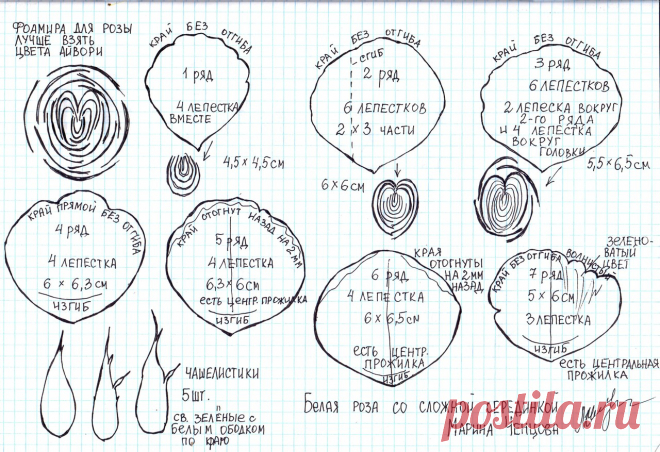 Фоамира для розы
лучше взять
цвета айвори
край без отгиба
1 ряд
4 лепестка
вместе
4,5 × 4,5 см
край без отгиба
сгиб
2 ряд
6 лепестков
2 × 3 части
6 × 6 см
край без отгиба
3 ряд
6 лепестков
2 лепеска вокруг
2-го ряда
и 4 лепестка
вокруг
головки
5,5 × 6,5 см
край прямой без отгиба
4 ряд
4 лепестка
6 × 6,3 см
изгиб
край отогнут назад на 2 мм
5 ряд
4 лепестка
6,3 × 6 см
есть центр. прожилка
изгиб
края
отогнуты
на 2 мм
назад
6 ряд
4 лепестка
6 × 6,5 см
есть центр.
прожилка
изгиб
зелено-
ватый
цвет
край без отгиба волнистый
7 ряд
5 × 6 см
3 лепестка
изгиб
есть центральная
прожилка
чашелистики
5 шт.
св. зелёные с
белым ободком
по краю
Белая роза со сложной серединкой
Марина Чепцова
postila.ru